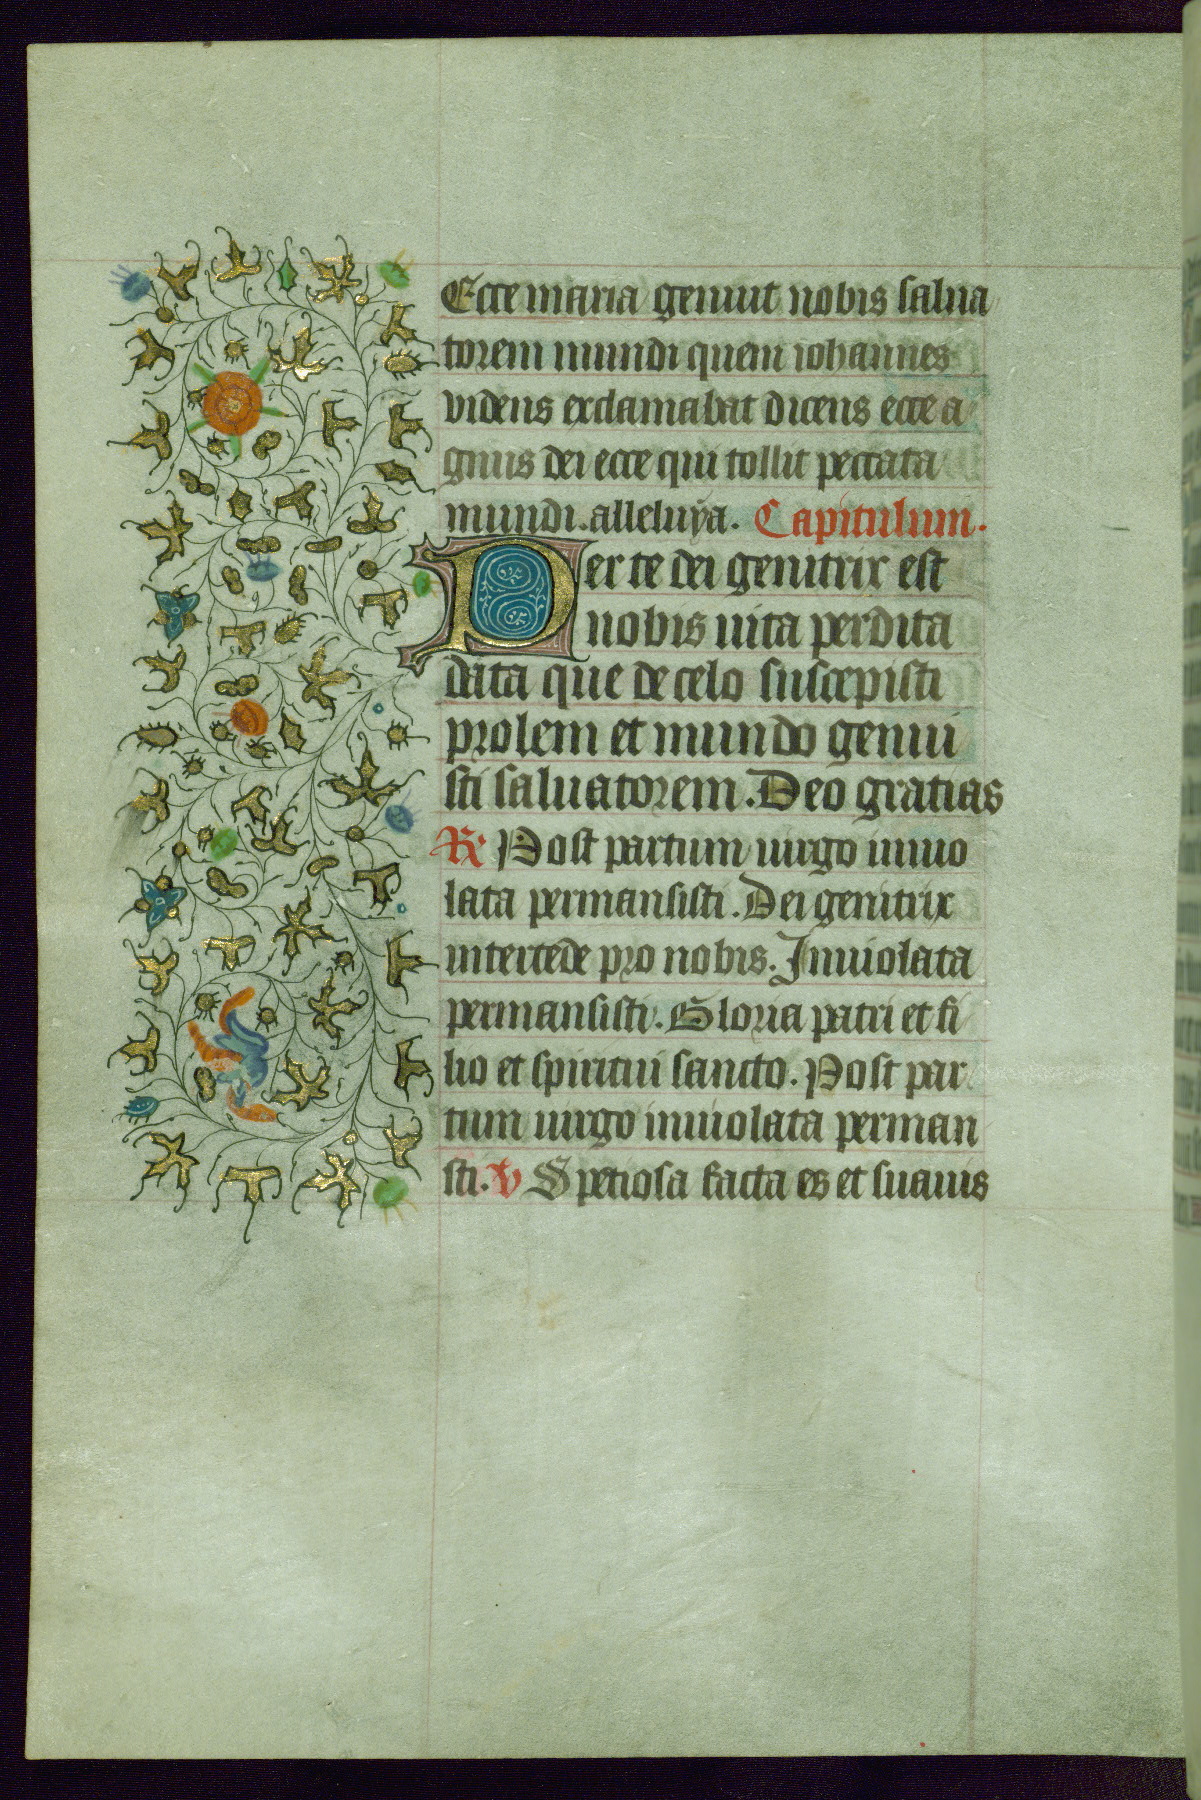 Ecce maria genuit nobis salua
torem mundi quem iohannes
videns exclamabat dicens ecce a
gnus dei ecce qui tollit peccata
mundi. alleluya. Capitulum.
Per te dei genitrix est
nobis uita perdita
data que de celo suscepisti
prolem et mundo genui
sti saluatorem. Deo gratias
R Post partum uirgo inuio
lata permansisti. Dei genitrix
intercede pro nobis. Inuiolata
permansisti. Gloria patri et fi
lio et spiritui sancto. Post par
tum uirgo inuiolata perman
sti. V Speciosa facta es et suauis